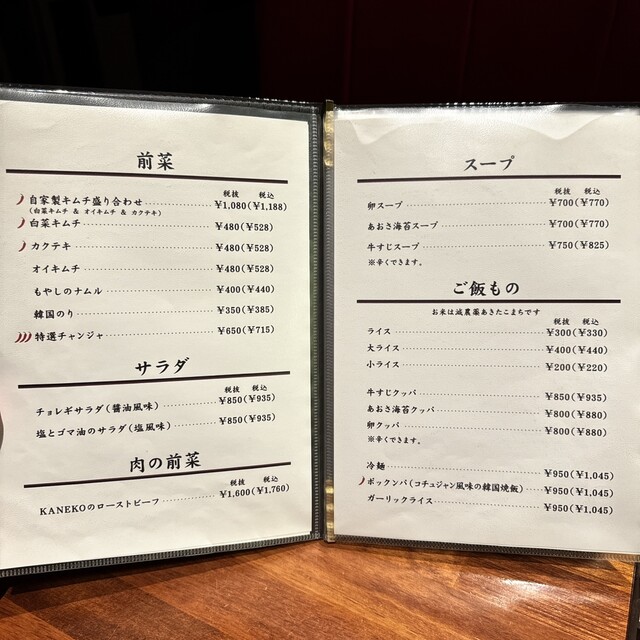 前菜
税抜 税込
自家製キムチ盛り合わせ ¥1,080(¥1,188)
(白菜キムチ & オイキムチ & カクテキ)
白菜キムチ ¥480(¥528)
カクテキ ¥480(¥528)
オイキムチ ¥480(¥528)
もやしのナムル ¥400(¥440)
韓国のり ¥350(¥385)
特選チャンジャ ¥650(¥715)
サラダ
税抜 税込
チョレギサラダ(醤油風味) ¥850(¥935)
塩とゴマ油のサラダ(塩風味) ¥850(¥935)
肉の前菜
税抜 税込
KANEKOのローストビーフ ¥1,600(¥1,760)
スープ
税抜 税込
卵スープ ¥700(¥770)
あおさ海苔スープ ¥700(¥770)
牛すじスープ ¥750(¥825)
※辛くできます。
ご飯もの
お米は減農薬あきたこまちです
税抜 税込
ライス ¥300(¥330)
大ライス ¥400(¥440)
小ライス ¥200(¥220)
牛すじクッパ ¥850(¥935)
あおさ海苔クッパ ¥800(¥880)
卵クッパ ¥800(¥880)
※辛くできます。
冷麺 ¥950(¥1,045)
ボックンバ(コチュジャン風味の韓国焼飯) ¥950(¥1,045)
ガーリックライス ¥950(¥1,045)